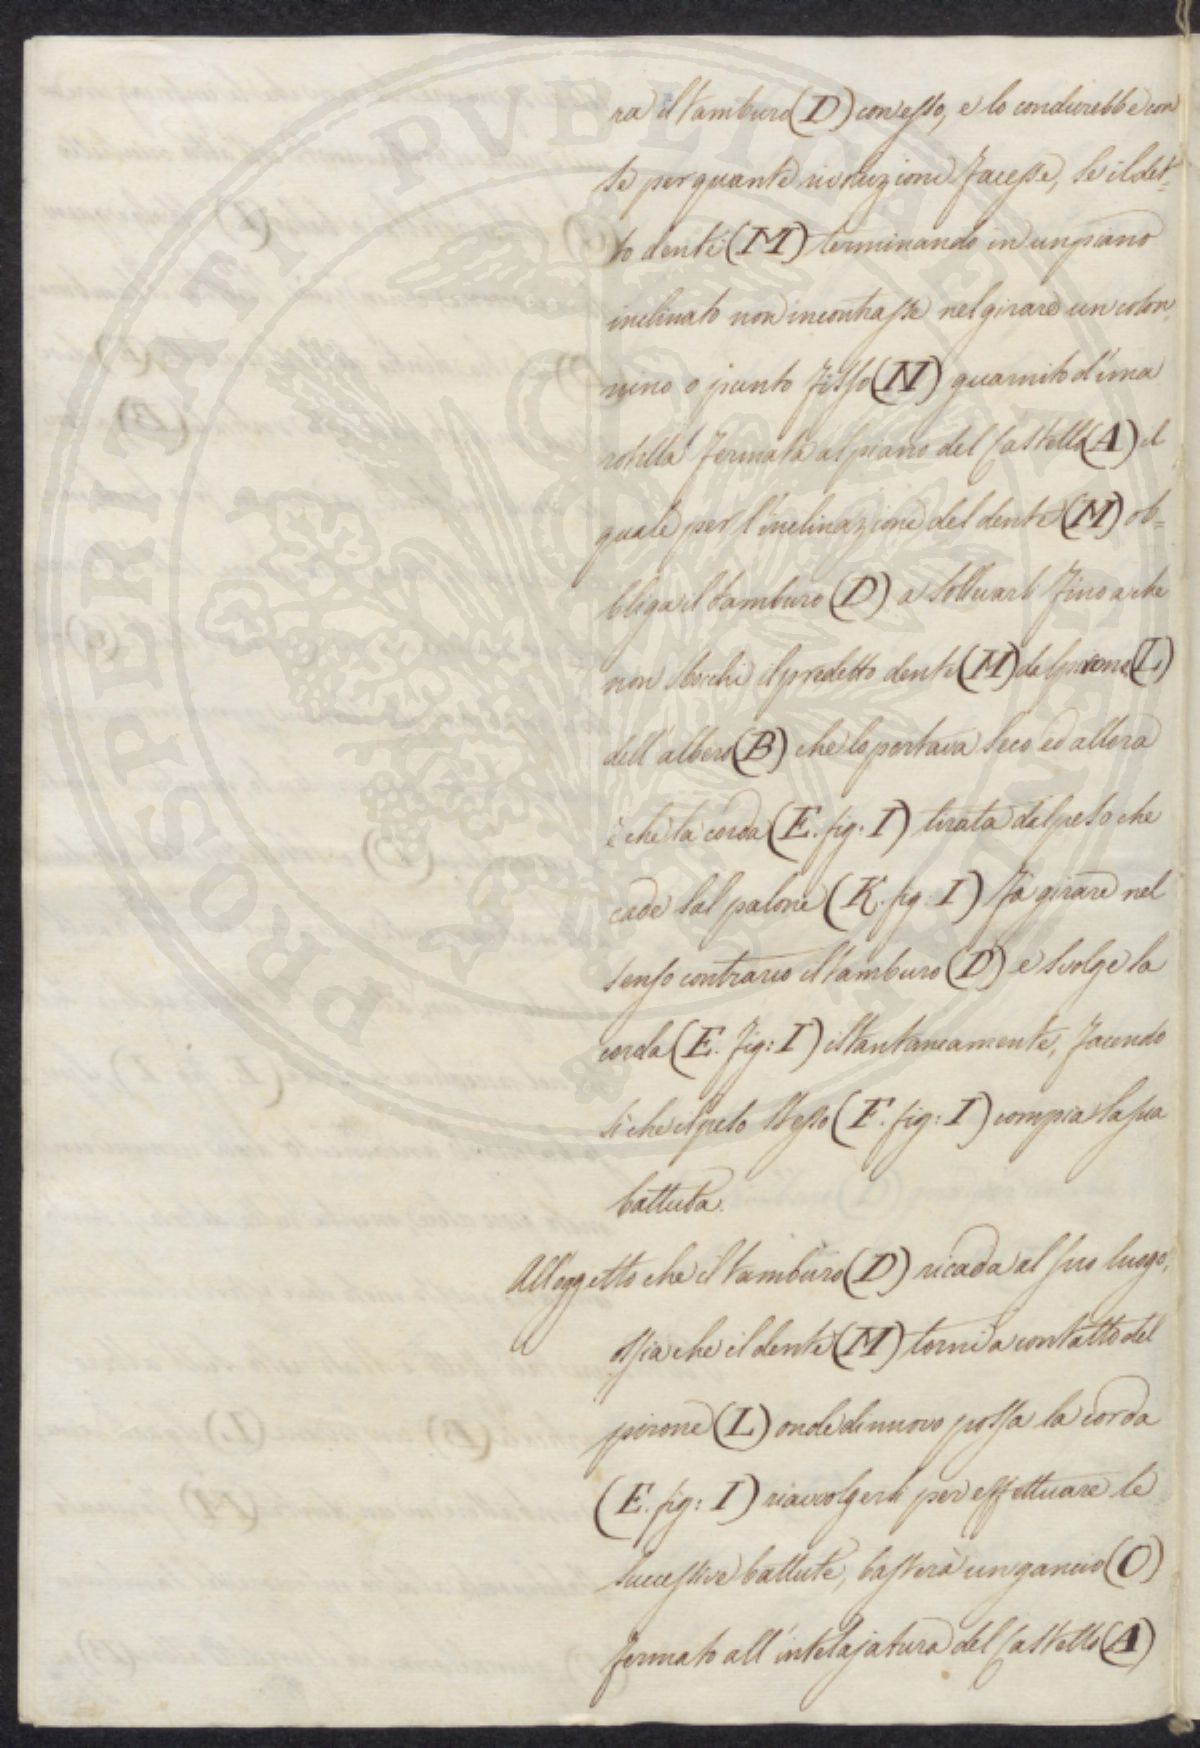 PROSPERITATI PVBLICAE AVGENDAE
rà il tamburo (D) con esso, e lo condurebbe con
se per quante rivoluzioni facesse, se il det-
to dente (M) terminando in un piano
inclinato non incontrasse nel girare un colon,
nino o punto fisso (N) guarnito d'una
rotella fermata al piano del Castello (A) il
quale per l'inclinazione del dente (M) ob=
bliga il tamburo (D) a sollevarsi fino a che
non sbocchi il predetto dente (M) dal pirone (L)
dell'albero (B) che lo portava seco ed allora
è che la corda (E. fig: I) tirata dal peso che
cade sal palone (K. fig: I) fà girare nel
senso contrario il tamburo (D) e svolge la
corda (E. fig: I) istantaneamente, facendo
si che il peso stesso (F. fig: I) compia la sua
battuta.
All'oggetto che il tamburo (D) ricada al suo luogo,
ossia che il dente (M) torni a contatto del
pirone (L) onde di nuovo possa la corda
(E. fig: I) riavvolgersi per effettuare le
successive battute, basterà un gancio (O)
fermato all'intelajatura del Castello (A)